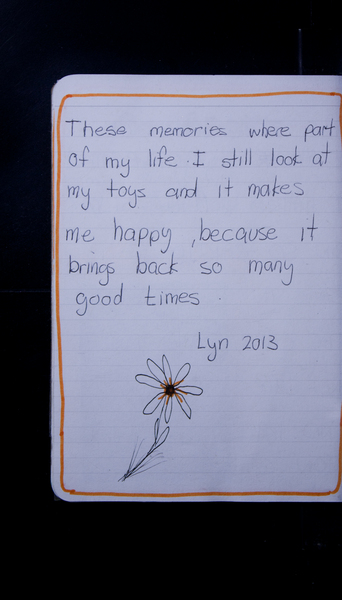 These memories where part
of my life. I still look at
my toys and it makes
me happy ,because it
brings back so many
good times .
Lyn 2013